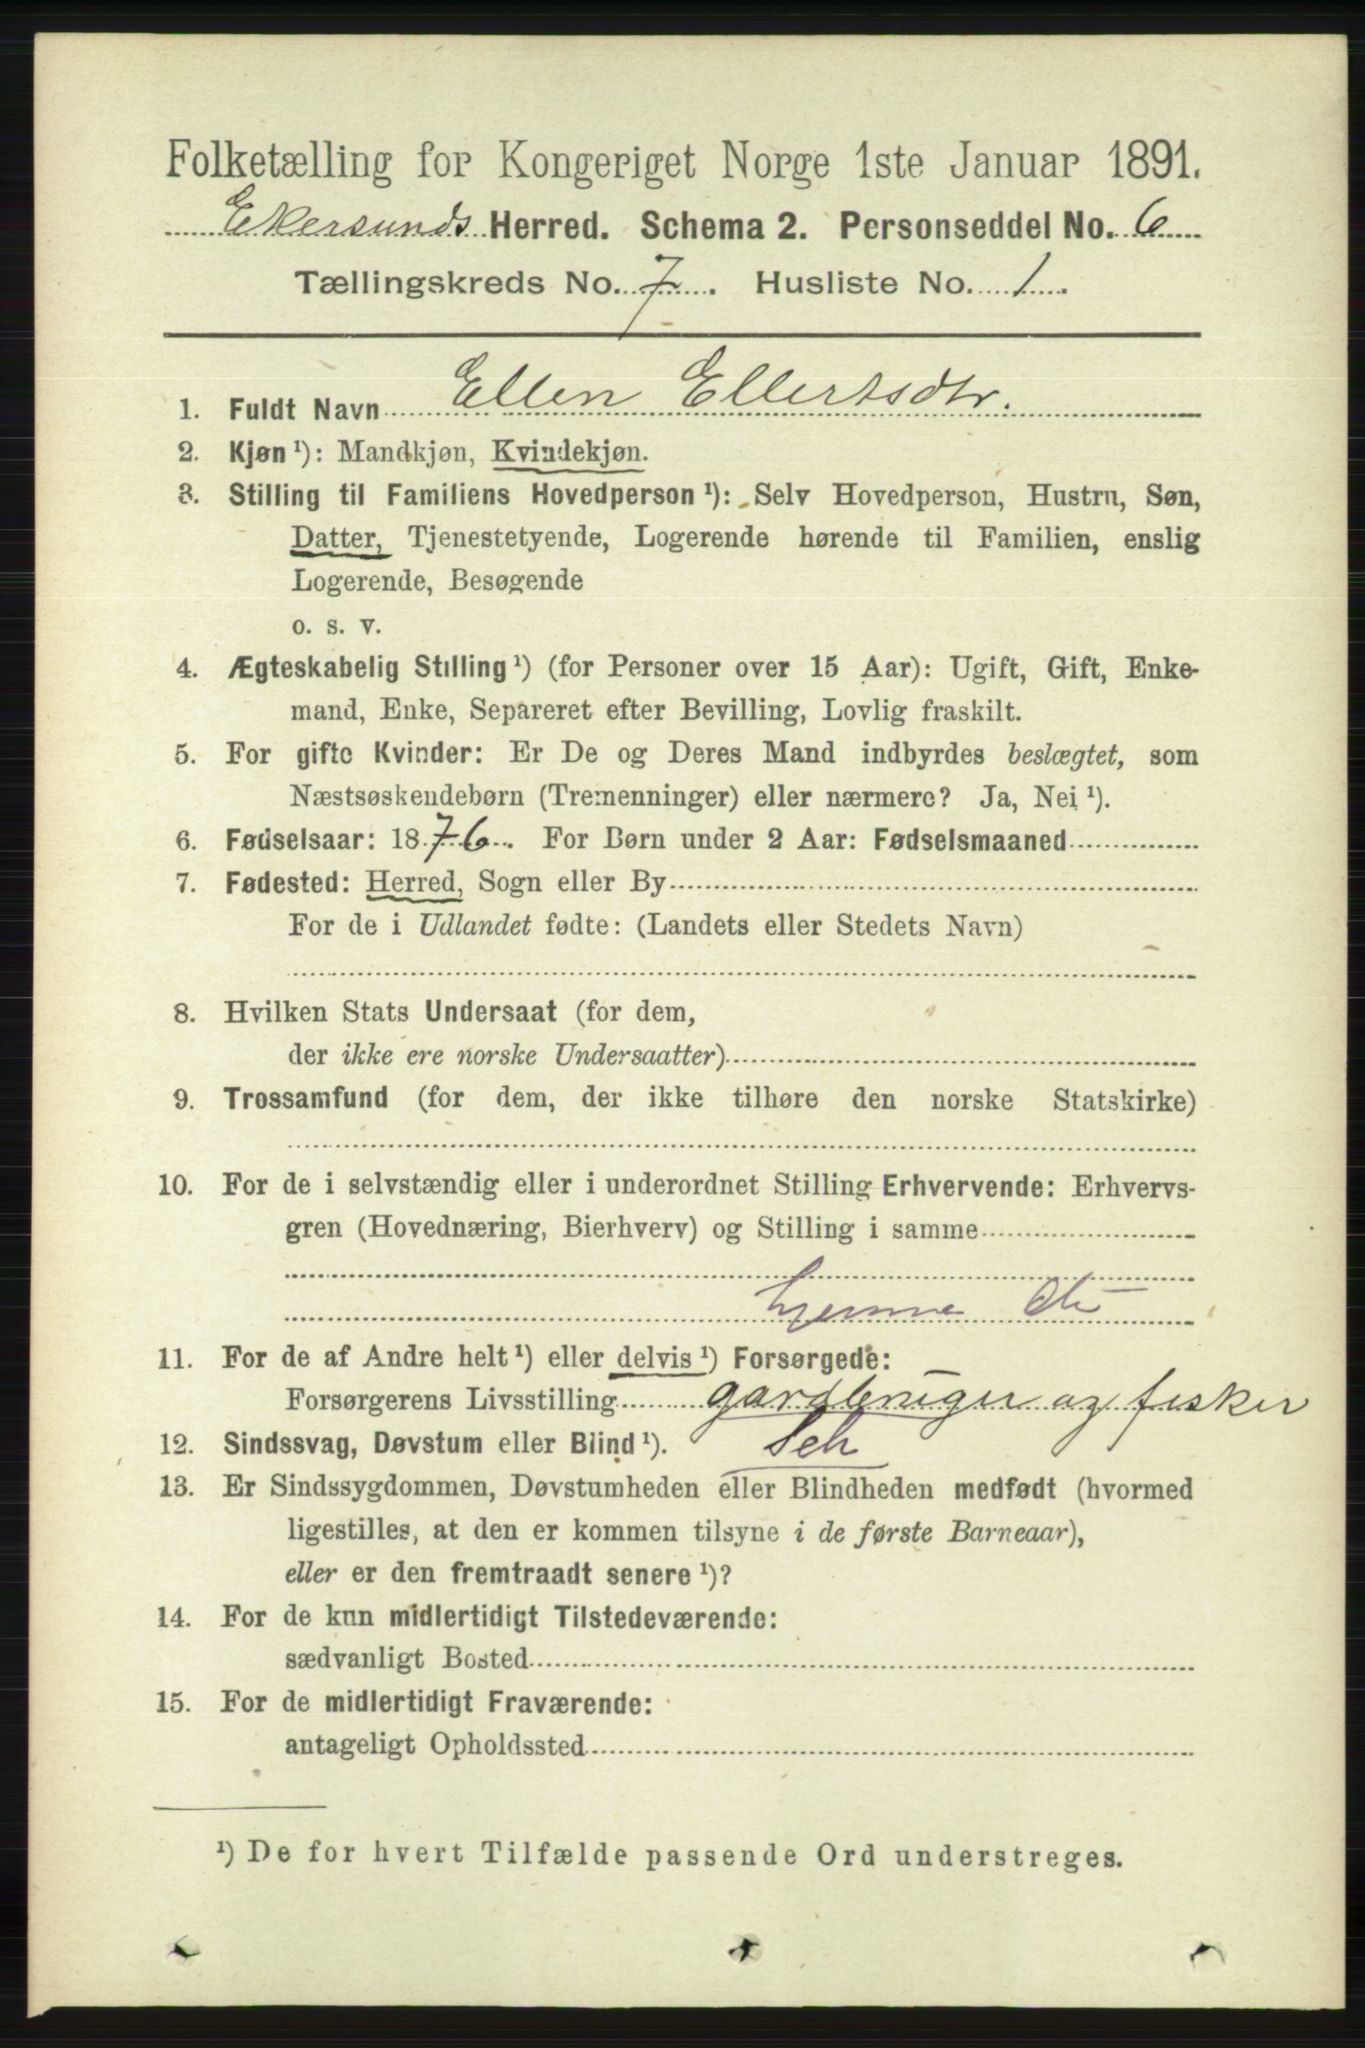 Folketælling for Kongeriget Norge 1ste Januar 1891.
Ekersunds Herred. Schema 2. Personseddel No. 6
Tællingskreds No. 7. Husliste No. 1.
1. Fuldt Navn Ellen Ellertsdtr.
2. Kjøn ¹): Mandkjøn, Kvindekjøn.
3. Stilling til Familiens Hovedperson ¹): Selv Hovedperson, Hustru, Søn,
Datter, Tjenestetyende, Logerende hørende til Familien, enslig
Logerende, Besøgende
o. s. v.
4. Ægteskabelig Stilling ¹) (for Personer over 15 Aar): Ugift, Gift, Enke-
mand, Enke, Separeret efter Bevilling, Lovlig fraskilt.
5. For gifte Kvinder: Er De og Deres Mand indbyrdes beslægtet, som
Næstsøskendebørn (Tremenninger) eller nærmere? Ja, Nei ¹).
6. Fødselsaar: 1876. For Børn under 2 Aar: Fødselsmaaned
7. Fødested: Herred, Sogn eller By
For de i Udlandet fødte: (Landets eller Stedets Navn)
8. Hvilken Stats Undersaat (for dem,
der ikke ere norske Undersaatter)
9. Trossamfund (for dem, der ikke tilhøre den norske Statskirke)
10. For de i selvstændig eller i underordnet Stilling Erhvervende: Erhvervs-
gren (Hovednæring, Bierhverv) og Stilling i samme
hjemme
11. For de af Andre helt ¹) eller delvis ¹) Forsørgede:
Forsørgerens Livsstilling gardbruger og fisker
12. Sindssvag, Døvstum eller Blind ¹).
13. Er Sindssygdommen, Døvstumheden eller Blindheden medfødt (hvormed
ligestilles, at den er kommen tilsyne i de første Barneaar),
eller er den fremtraadt senere ¹)?
14. For de kun midlertidigt Tilstedeværende:
sædvanligt Bosted
15. For de midlertidigt Fraværende:
antageligt Opholdssted
¹) De for hvert Tilfælde passende Ord understreges.